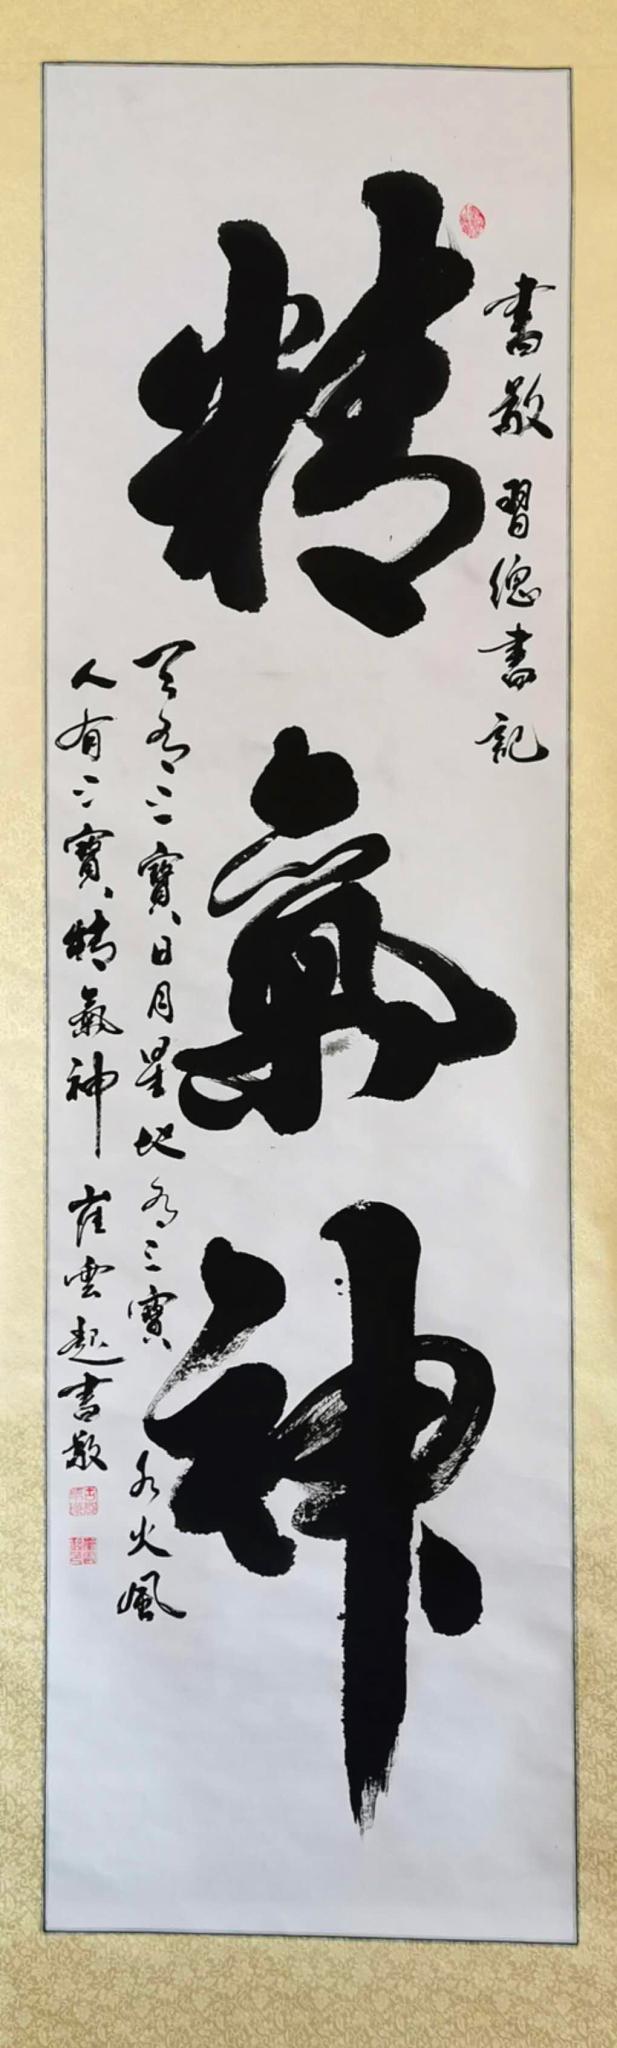 書敬習總書記
精氣神
天有三寶日月星地有三寶水火風
人有三寶精氣神崔雲起書敬